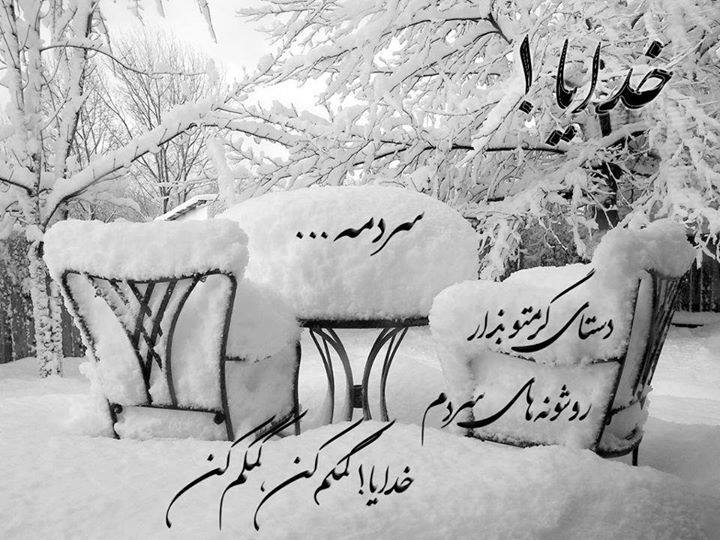 خدایا!
سردمه ...
دستای گرمتو بذار
رو شونه های سردم
خدایا! کمکم کن، کمکم کن